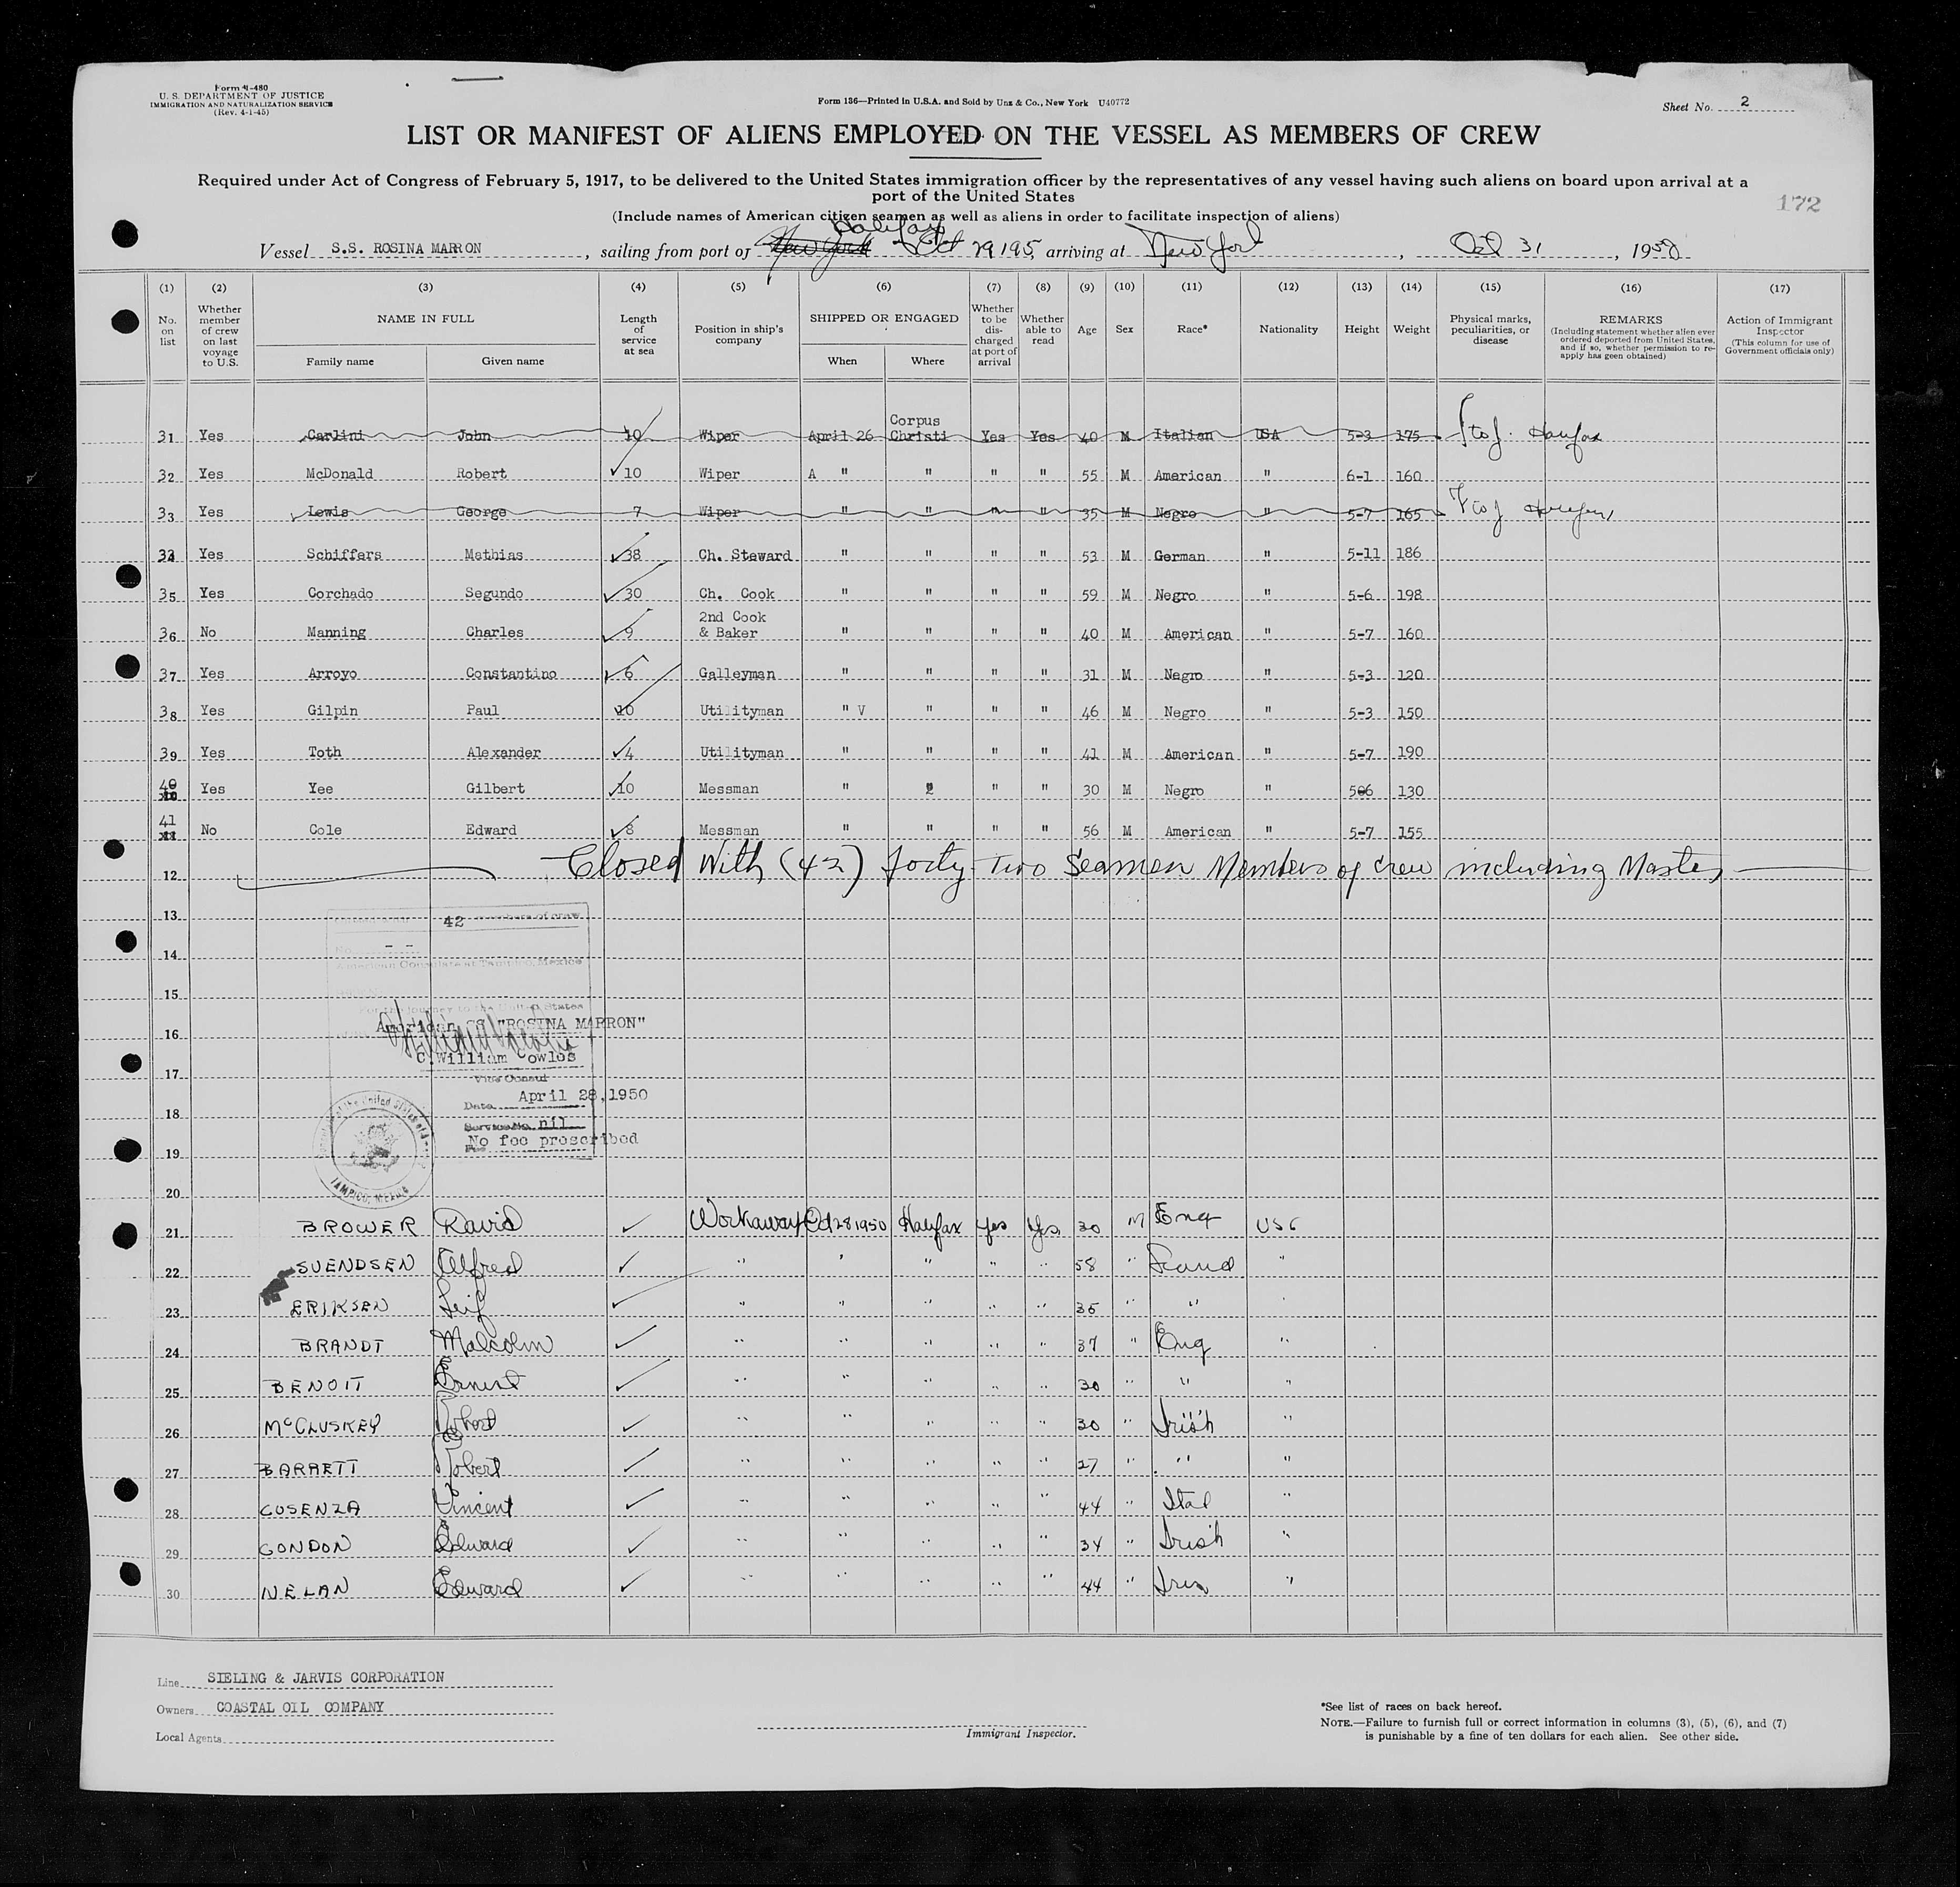 Form I-480
U. S. DEPARTMENT OF JUSTICE
IMMIGRATION AND NATURALIZATION SERVICE
(Rev. 4-1-45)
Form 136—Printed in U.S.A. and Sold by Unz & Co., New York U40772
Sheet No. 2
LIST OR MANIFEST OF ALIENS EMPLOYED ON THE VESSEL AS MEMBERS OF CREW
Required under Act of Congress of February 5, 1917, to be delivered to the United States immigration officer by the representatives of any vessel having such aliens on board upon arrival at a
port of the United States
172
(Include names of American citizen seamen as well as aliens in order to facilitate inspection of aliens)
Halifax
Vessel S.S. ROSINA MARRON, sailing from port of New York Oct 29 195, arriving at New York, Oct 31, 1950
(1) (2) (3) (4) (5) (6) (7) (8) (9) (10) (11) (12) (13) (14) (15) (16) (17)
No. on list
Whether member of crew on last voyage to U.S.
NAME IN FULL
Family name Given name
Length of service at sea
Position in ship's company
SHIPPED OR ENGAGED
When Where
Whether to be discharged at port of arrival
Whether able to read
Age
Sex
Race*
Nationality
Height
Weight
Physical marks, peculiarities, or disease
REMARKS
(Including statement whether alien ever ordered deported from United States, and if so, whether permission to re-apply has geen obtained)
Action of Immigrant Inspector
(This column for use of Government officials only)
31 Yes Carlini John 10 Wiper April 26 Corpus Christi Yes Yes 40 M Italian USA 5-3 175 Halifax
32 Yes McDonald Robert 10 Wiper A " " " " 55 M American " 6-1 160
33 Yes Lewis George 7 Wiper " " " " 35 M Negro " 5-7 165 Halifax
34 Yes Schiffers Mathias 38 Ch. Steward " " " " 53 M German " 5-11 186
35 Yes Corchado Segundo 30 Ch. Cook " " " " 59 M Negro " 5-6 198
36 No Manning Charles 9 2nd Cook & Baker " " " " 40 M American " 5-7 160
37 Yes Arroyo Constantino 6 Galleyman " " " " 31 M Negro " 5-3 120
38 Yes Gilpin Paul 10 Utilityman " V " " " 46 M Negro " 5-3 150
39 Yes Toth Alexander 4 Utilityman " " " " 41 M American " 5-7 190
40 Yes Yee Gilbert 10 Messman " " " " 30 M Negro " 506 130
41 No Cole Edward 8 Messman " " " " 56 M American " 5-7 155
12 Closed With (42) forty-Two Seamen Members of crew including Master
13 42 members of crew
14 - -
American Consulate at Tampico, Mexico
15
For the journey to the United States
16 American SS "ROSINA MARRON"
C. William Cowles
17 Vice Consul
Date April 28, 1950
18
Service No. nil
No fee prescribed
19
TAMPICO, MEXICO
20
21 BROWER David Workaway Oct 28 1950 Halifax Yes Yes 30 M Eng US C
22 SUENDSEN Alfred " " " " " 58 " Scand "
23 ERIKSEN Leif " " " " " 35 " " "
24 BRANDT Malcolm " " " " " 37 " Eng "
25 BENOIT Ernest " " " " " 30 " " "
26 McCLUSKEY Robert " " " " " 30 " Irish "
27 BARRETT Robert " " " " " 27 " " "
28 COSENZA Vincent " " " " " 44 " Ital "
29 CONDON Edward " " " " " 34 " Irish "
30 NELAN Edward " " " " " 44 " Iris "
Line SIELING & JARVIS CORPORATION
Owners COASTAL OIL COMPANY
Local Agents
Immigrant Inspector.
*See list of races on back hereof.
NOTE.—Failure to furnish full or correct information in columns (3), (5), (6), and (7)
is punishable by a fine of ten dollars for each alien. See other side.